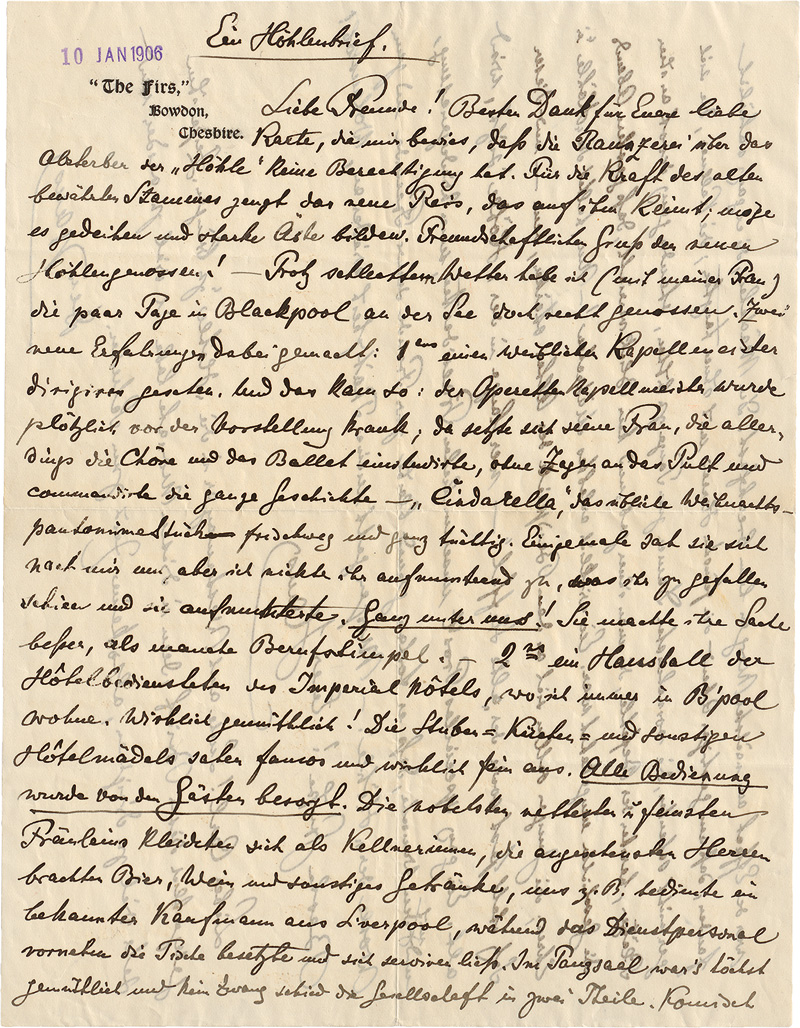 Ein Höhlenbrief.
10 JAN 1906
"The Firs,"
Bowdon,
Cheshire.
Liebe Freunde! Besten Dank für Euere liebe
Karte, die mir bewies, daß die Raunzerei über das
Absterben der „Höhle" keine Berechtigung hat. Für die Kraft des alten
bewährten Stammes zeugt das neue Reis, das auf ihm keimt; möge
es gedeihen und starke Äste bilden. Freundschaftlichen Gruß den neuen
Höhlengenossen! — Trotz schlechtem Wetter habe ich (mit meiner Frau)
die paar Tage in Blackpool an der See doch recht genossen. Zwei
neue Erfahrungen dabei gemacht: 1tens einen weiblichen Kapellmeister
dirigiren gesehen. Und das kam so: der Operettenkapellmeister wurde
plötzlich vor der Vorstellung krank; da setzte sich seine Frau, die aller-
dings die Chöre und das Ballet einstudirte, ohne Zagen an das Pult und
commandirte die ganze Geschichte — „Cindarella", das übliche Weihnachts-
pantomime Stück frischweg und ganz tüchtig. Einigemale sah sie sich
nach mir um, aber ich nickte ihr aufmunternd zu, was ihr zu gefallen
schien und sie aufmunterte. Ganz unter uns! Sie machte ihre Sache
beßer, als manche Berufsstümpel. — 2tns ein Hausball der
Hôtelbediensteten des Imperial Hôtels, wo ich immer in B'pool
wohne. Wirklich gemüthlich! Die Stuben= Küchen= und sonstigen
Hôtelmädels sahen famos und wirklich fein aus. Alle Bedienung
wurde von den Gästen besorgt. Die nobelsten, nettesten u feinsten
Fräuleins kleideten sich als Kellnerinnen, die angesehensten Herren
brachten Bier, Wein und sonstiges Getränke, uns z.B. bediente ein
bekannter Kaufmann aus Liverpool, während das Dienstpersonal
vornehm die Tische besetzte und sich serviren ließ. Im Tanzsaal war's höchst
gemüthlich und kein Zwang schied die Gesellschaft in zwei Theile. Komisch